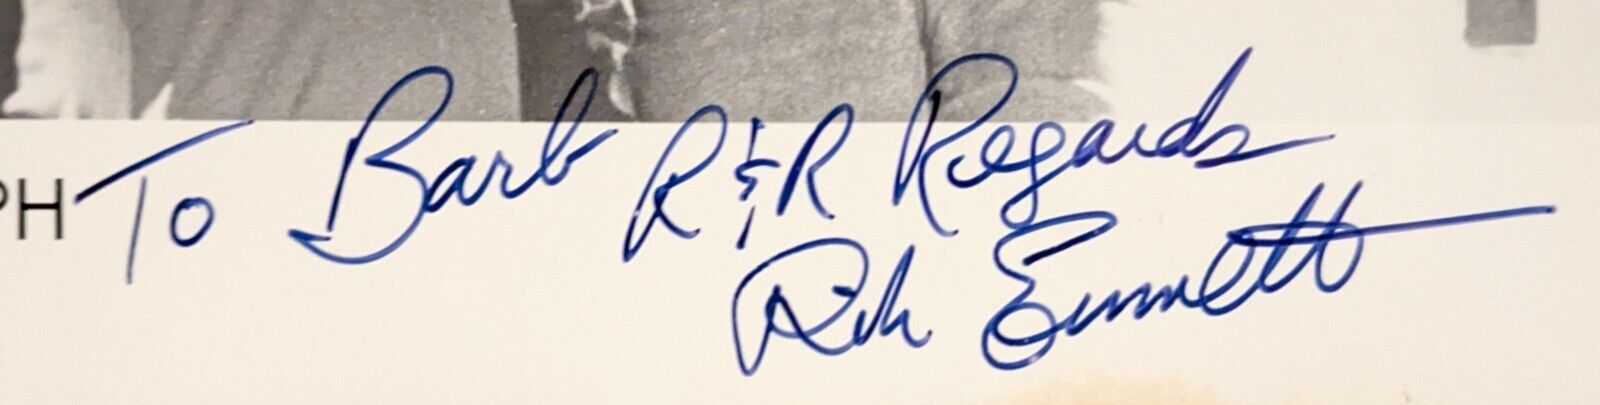 PH
To Barb R&R Regards
Rik Emmett